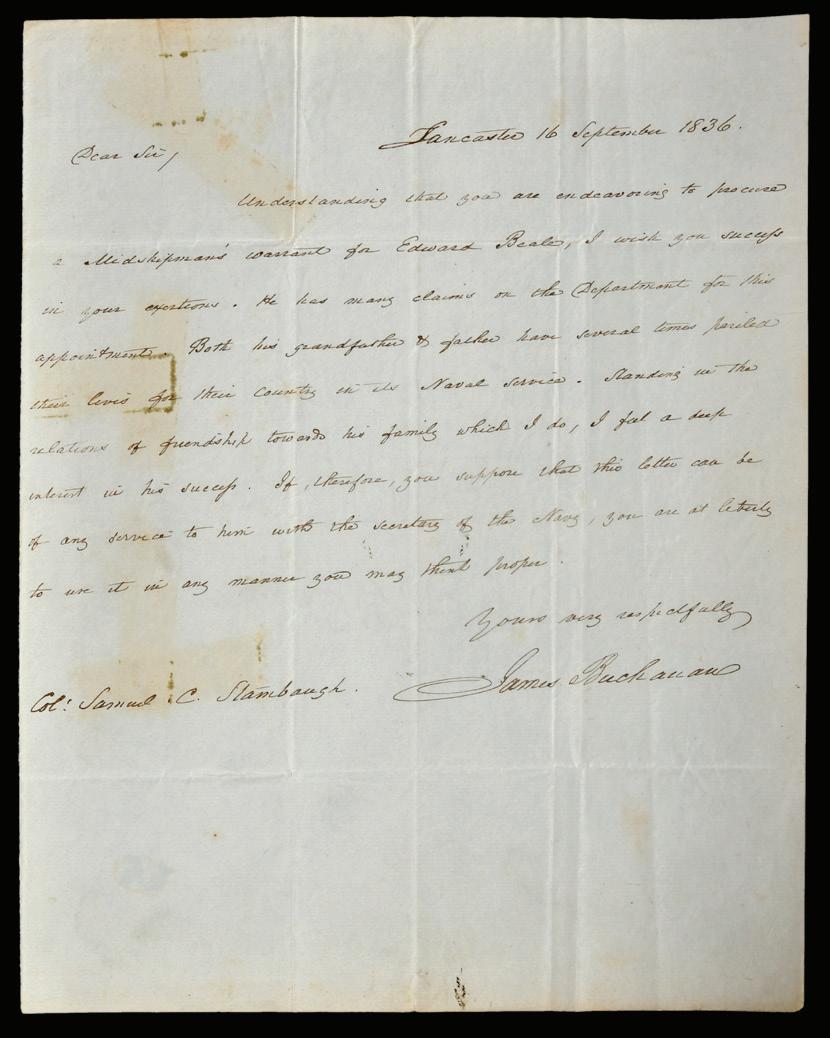 Lancaster 16 September 1836.
Dear Sir,
Understanding that you are endeavoring to procure
a Midshipman's warrant for Edward Beale, I wish you success
in your exertions. He has many claims on the Department for this
appointment. Both his grandfather & father have several times periled
their lives for their Country in its Naval service. Standing in the
relations of friendship towards his family which I do, I feel a deep
interest in his success. If, therefore, you suppose that this letter can be
of any service to him with the secretary of the Navy, you are at liberty
to use it in any manner you may think proper.
Yours very respectfully
James Buchanan
Col: Samuel C. Stambaugh.